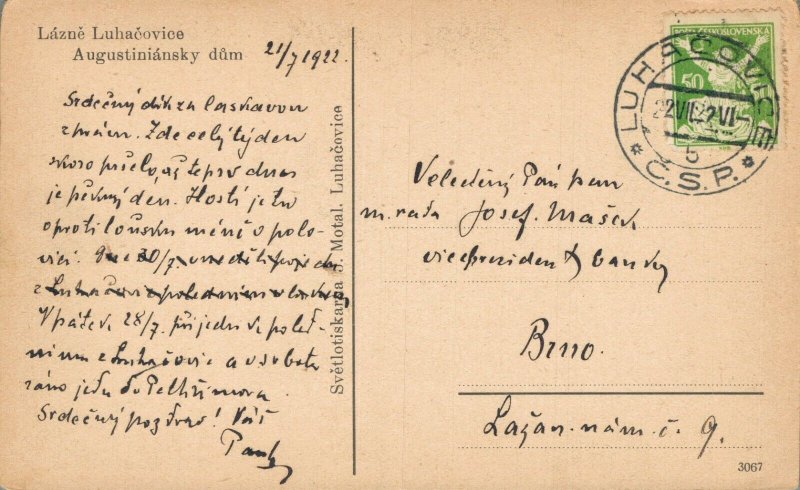 Lázně Luhačovice
Augustiniánsky dům
21/7 1922
Srdečný dík za laskavou
zprávu. Zde celý týden
skoro pršelo, až teprv dnes
je pěkný den. Hostí je tu
oproti loňsku méně o polo-
vici. 30/7. v neděli pojedu
z Luhačovic poledním vlakem
V pátek 28/7. přijedu v poled-
ním z Luhačovic a v sobotu
ráno jedu do Pelhřimova
Srdečný pozdrav! Váš
Světlotiskárna J. Motal. Luhačovice
POŠTA ČESKOSLOVENSKÁ
50
LUHAČOVICE
Č.S.P.
Veleděný Pán pan
m. rada Josef Mašek
viceprezident banky
Brno.
Lažan. nám. č. 9.
3067